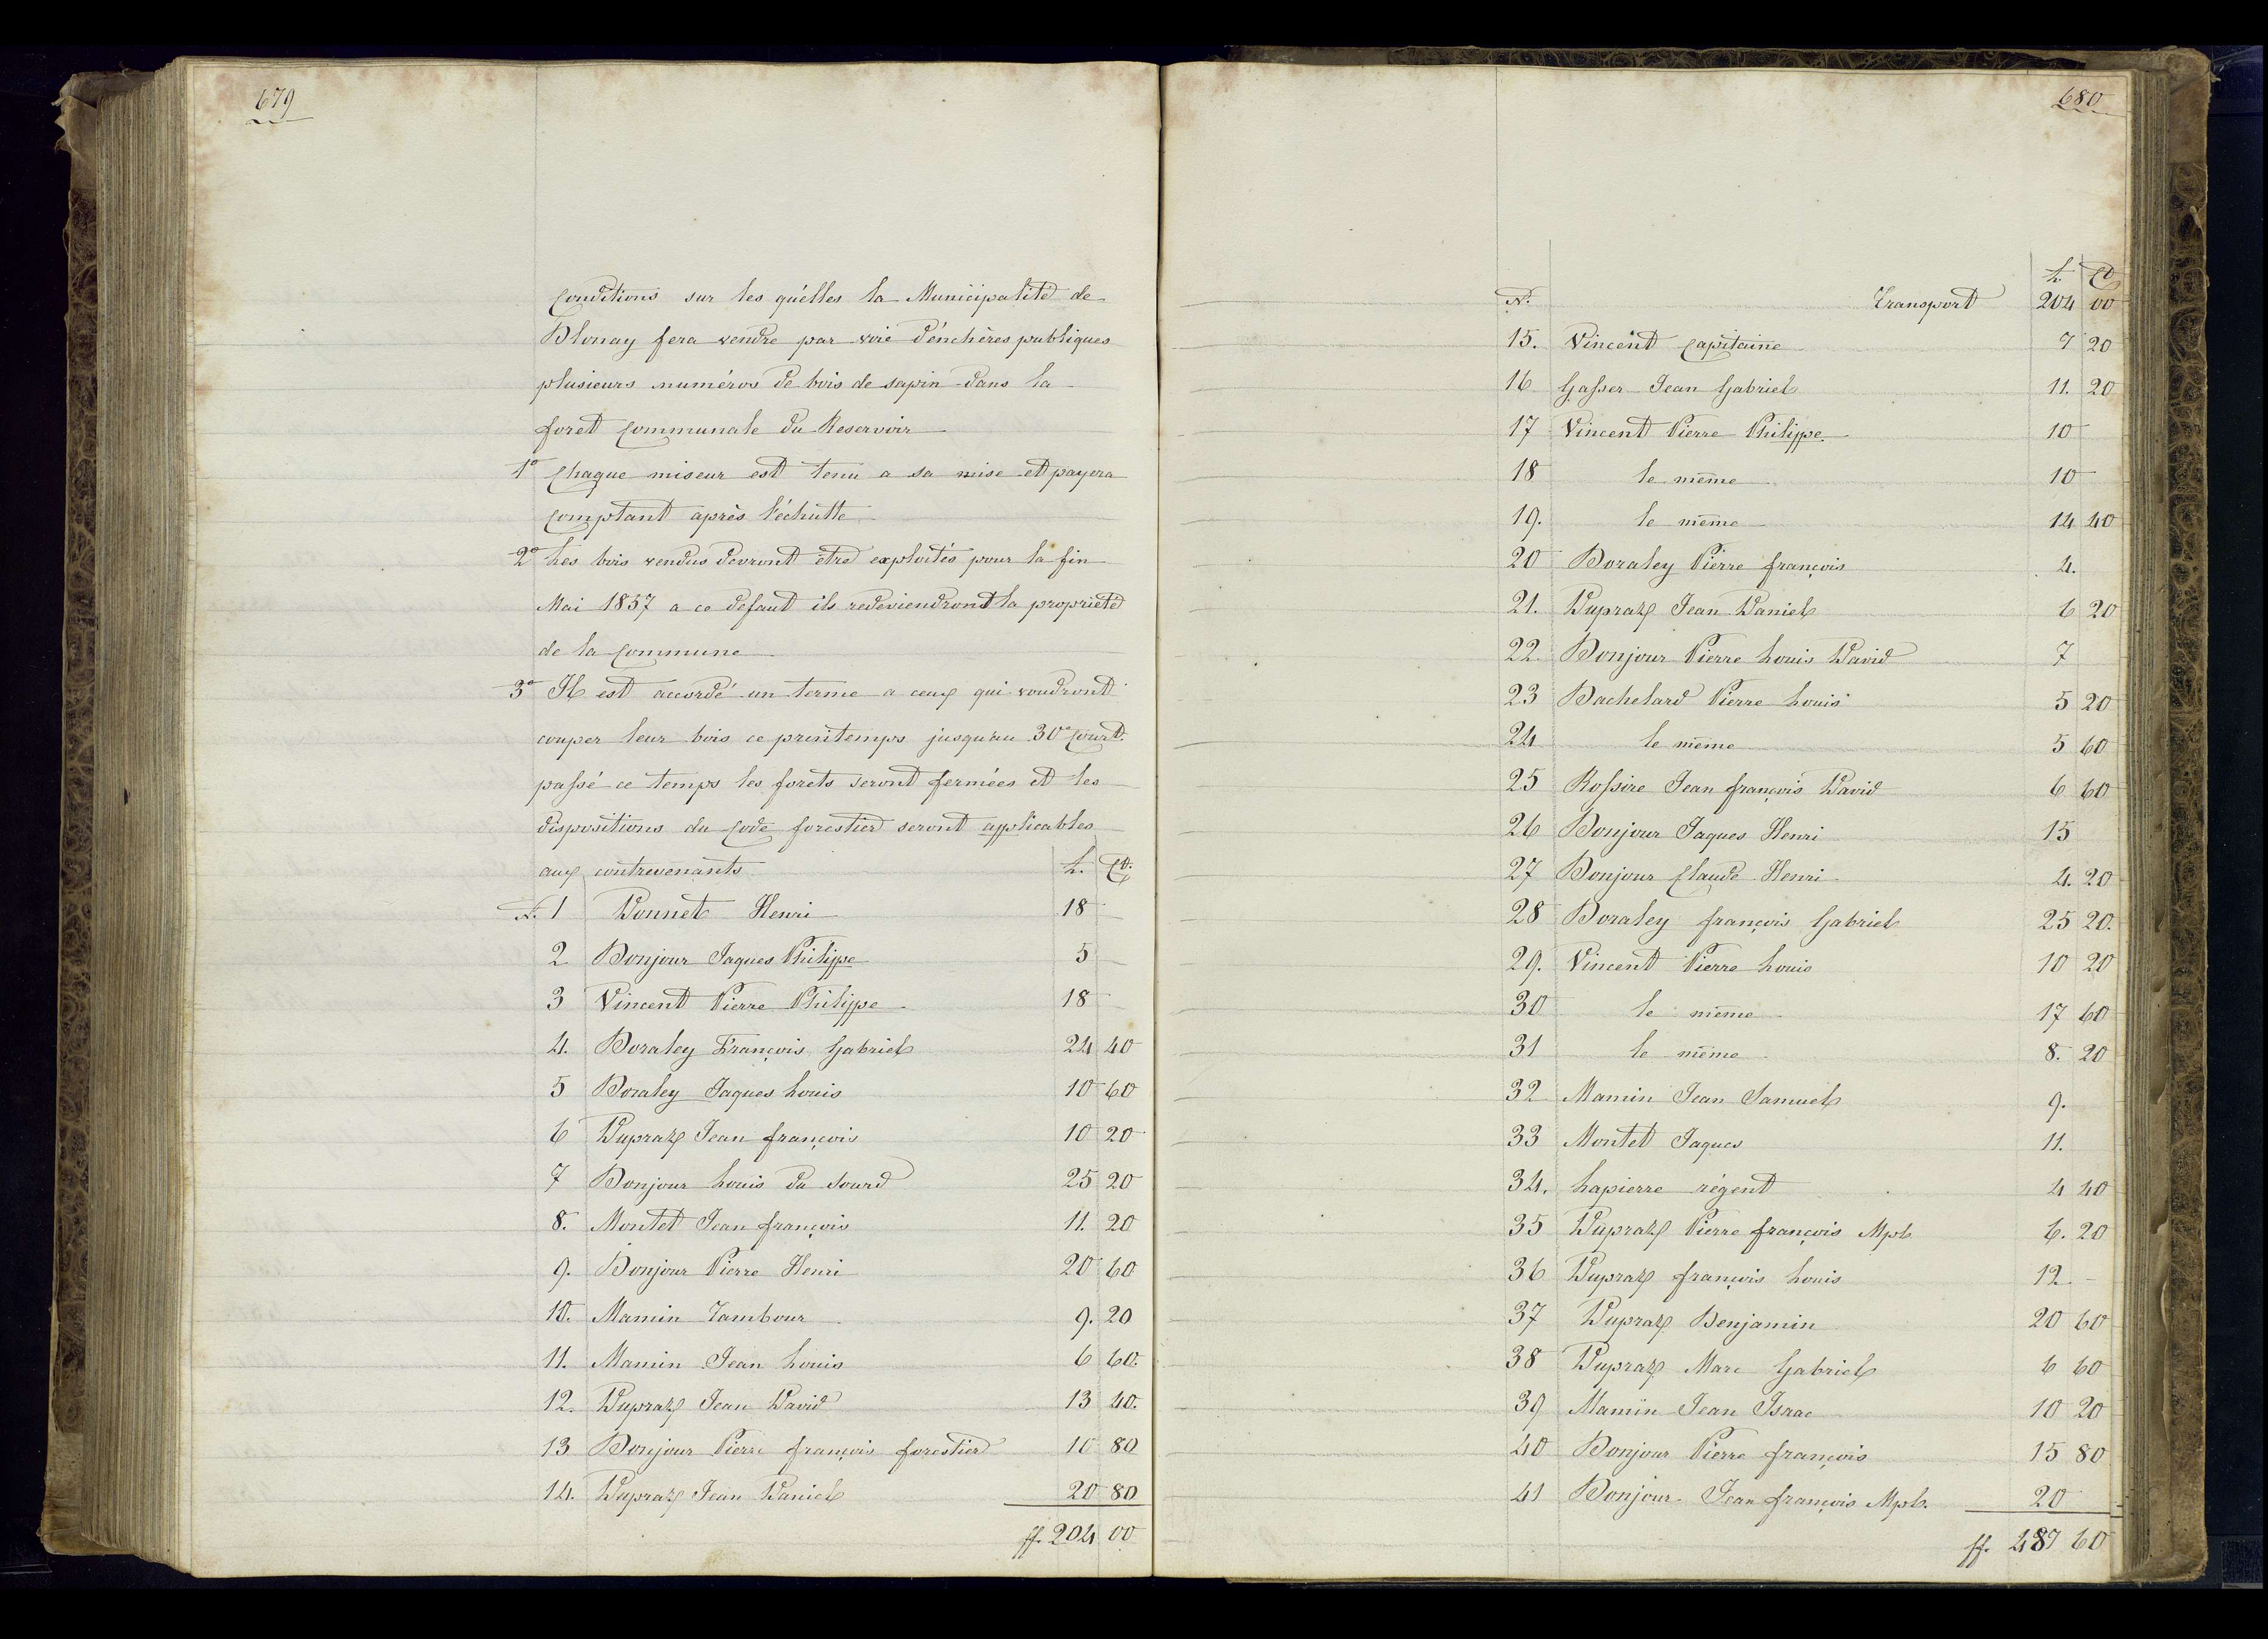 679
Conditions sur les quélles la Municipalité de
Blonay fera vendre par voie d'énchères publiques
plusieurs numéros de bois de sapin dans la
foret Communale du Reservoir
1º Chaque miseur est tenu a sa mise et payera
Comptant après l'échutte
2º Les bois vendus devront être exploités pour la fin
Mai 1837 a ce defaut ils redeviendront la proprieté
de la Commune
3º Il est accordé un terme a ceux qui voudront
couper leur bois ce printemps jusqu'au 30e Court.
passé ce temps les forets seront fermées et les
dispositions du Code forestier seront applicables
aux contrevenants L. Ct.
N. 1 Bonnet Henri 18
2 Bonjour Jaques Philippe 5
3 Vincent Pierre Philippe 18
4. Boraley François Gabriel 24 40
5 Boraley Jaques Louis 10 60
6 Dupraz Jean françois 10 20
7 Bonjour Louis du Sourd 25 20
8. Montet Jean françois 11. 20
9. Bonjour Pierre Henri 20 60
10. Mamin Tambour 9. 20
11. Mamin Jean Louis 6 60.
12. Dupraz Jean David 13 40.
13 Bonjour Pierre françois forestier 10 80
14. Dupraz Jean Daniel 20 80
ff. 204 00
680
L. Ct
N. Transport 204 00
15. Vincent Capitaine 7 20
16 Gasser Jean Gabriel 11. 20
17 Vincent Pierre Philippe 10
18 le même 10
19. le même 14 40
20 Boraley Pierre françois 4.
21. Dupraz Jean Daniel 6 20
22. Bonjour Pierre Louis David 7
23 Bachelard Pierre Louis 5 20
24 le même 5 60
25 Rossire Jean françois David 6 60
26 Bonjour Jaques Henri 15
27 Bonjour Claude Henri 4. 20
28 Boraley françois Gabriel 25 20.
29. Vincent Pierre Louis 10 20
30 le même 17 60
31 le même 8. 20
32 Mamin Jean Samuel 9.
33 Montet Jaques 11.
34. Lapierre régent 4 40
35 Dupraz Pierre françois Mpl. 6. 20
36 Dupraz françois Louis 12. -
37 Dupraz Benjamin 20 60
38 Dupraz Marc Gabriel 6 60
39 Mamin Jean Isaac 10 20
40 Bonjour Pierre françois 15 80
41 Bonjour Jean françois Mpl. 20
ff. 487 60